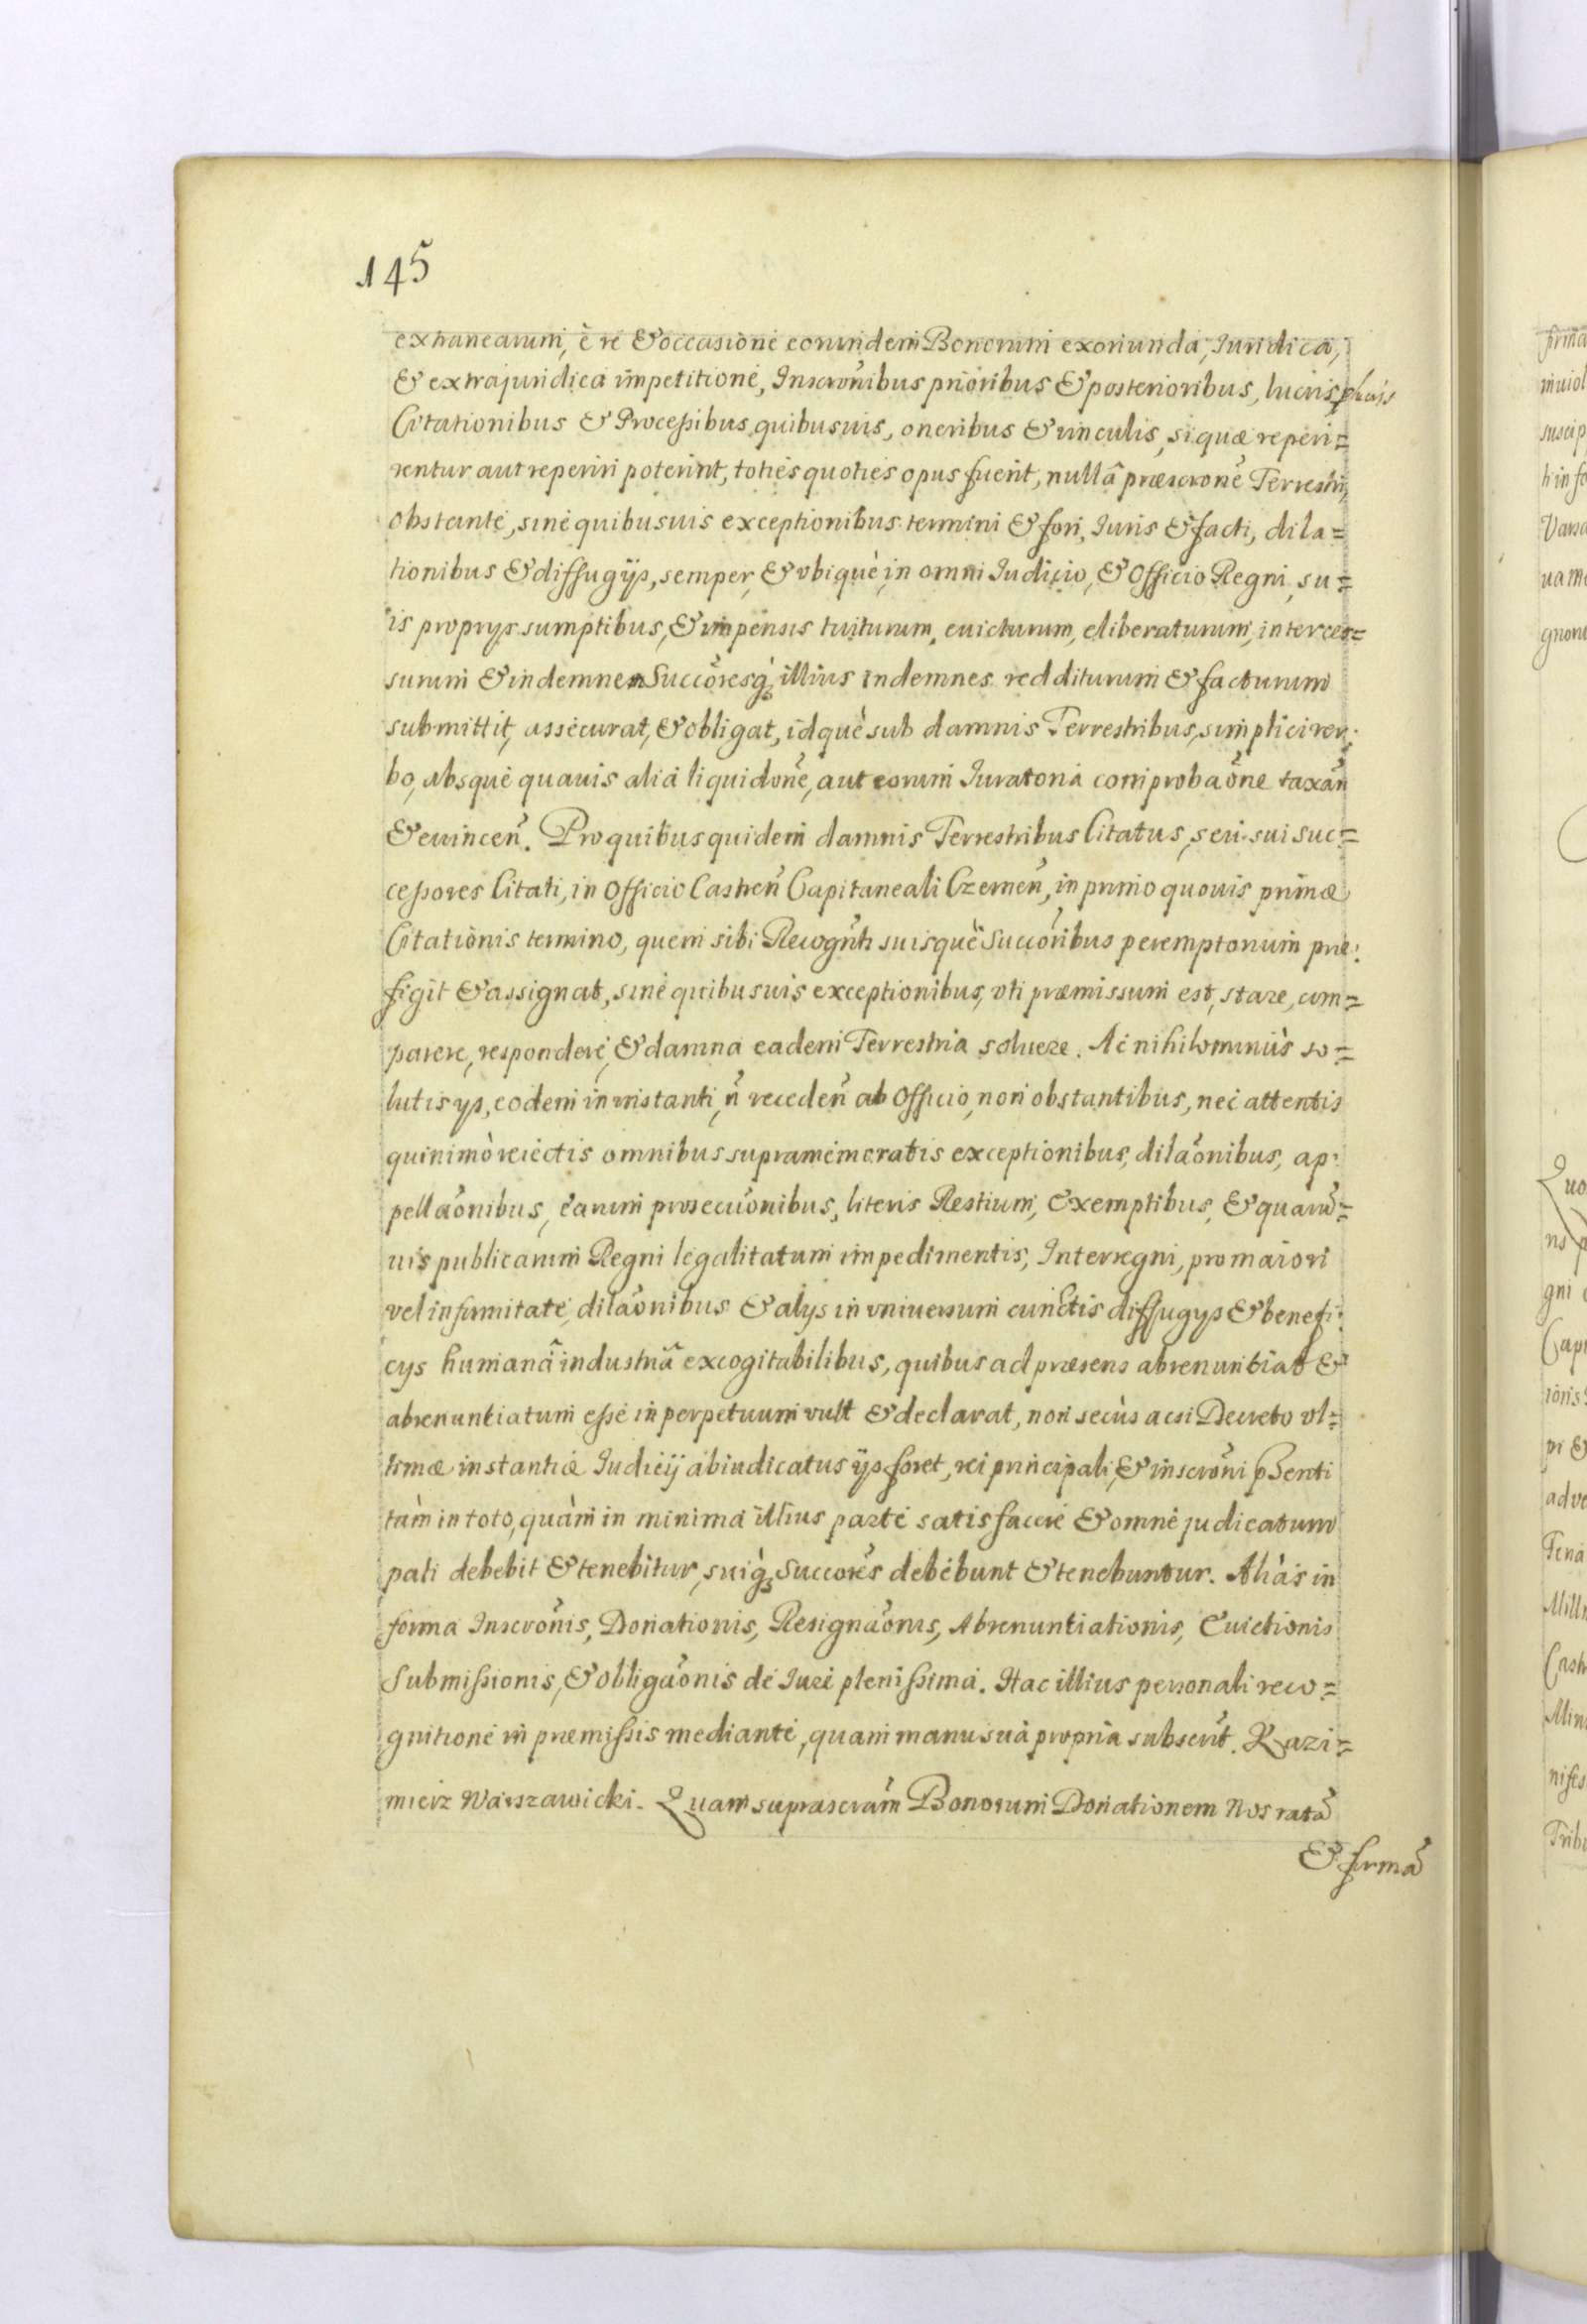 145
extranearum, è re & occasione eorundem Bonorum exoriunda, Iuridica,
& extrajuridica impetitione, Inscrõnibus prioribus & posterioribus, lucris
Citationibus & Processibus quibusuis, oneribus & vinculis, si quæ reperi=
rentur aut reperiri poterint, toties quoties opus fuerit, nullâ præscrone Terrestri,
obstante, sine quibusuis exceptionibus termini & fori, Iuris & facti, dila=
tionibus & diffugijs, semper, & vbiquè, in omni Iudicio, & Officio Regni, su=
is proprys sumptibus, & impensis tuiturum, euicturum, eliberaturum, interces=
surum & indemnem Succõresq́ illius indemnes redditurum & facturum
submittit, assecurat, & obligat, idquè sub damnis Terrestribus, simplici ver:
bo, absque quauis alia liquidõne, aut eorum Iuratoria comprobaõne taxañ
& euinceñ. Pro quibus quidem damnis Terrestribus Citatus, seu sui suc=
cessores Citati, in Officio Castreñ Capitaneali Czerneñ, in primo quouis primæ
Citationis termino, quem sibi Recogñts suisquè Succõribus peremptorium præ:
figit & assignat, sine quibusuis exceptionibus, vti præmissum est, stare, com=
parere, respondere, & damna eadem Terrestria soluere. Ac nihilominùs so=
lutis ys, eodem in instanti, ñ recedeñ ab Officio, non obstantibus, nec attentis
quinimò reiectis omnibus supramemoratis exceptionibus, dilaõnibus, ap:
pellaõnibus, earum prosecuõnibus, literis Restium, Exemptibus, & quarũ=
uis publicarum Regni legalitatum impedimentis, Interregni, pro maiori
vel infirmitate, dilaõnibus & alys in vniuersum cunctis diffugys & benefi:
cys humanâ industriâ excogitabilibus, quibus ad præsens abrenuntiat &
abrenuntiatum esse in perpetuum vult & declarat, non secùs acsi Decreto vl=
timæ instantiæ Iudicij abiudicatus ijs foret, rei principali, & inscrõni pñsenti
tàm in toto, quàm in minima illius parte satisfacere & omne judicatum
pati debebit & tenebitur, suiq́ Succores debebunt & tenebuntur. Aliàs in
forma Inscrõnis, Donationis, Resignaõnis, Abrenuntiationis, Euictionis
Submissionis, & obligaõnis de Iure plenissima. Hac illius personali reco=
gnitione in præmissis mediante, quam manu sua propria subscrit. Kazi=
mierz Warszawicki. Quam suprascram Bonorum Donationem Nos ratã
& firmã